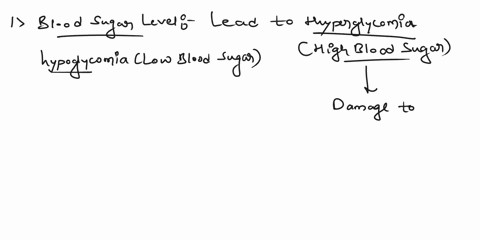 1) Blood Sugar Level:- Lead to Hyperglycomia
hypoglycomia (Low Blood Sugar)
(High Blood Sugar)
Damage to